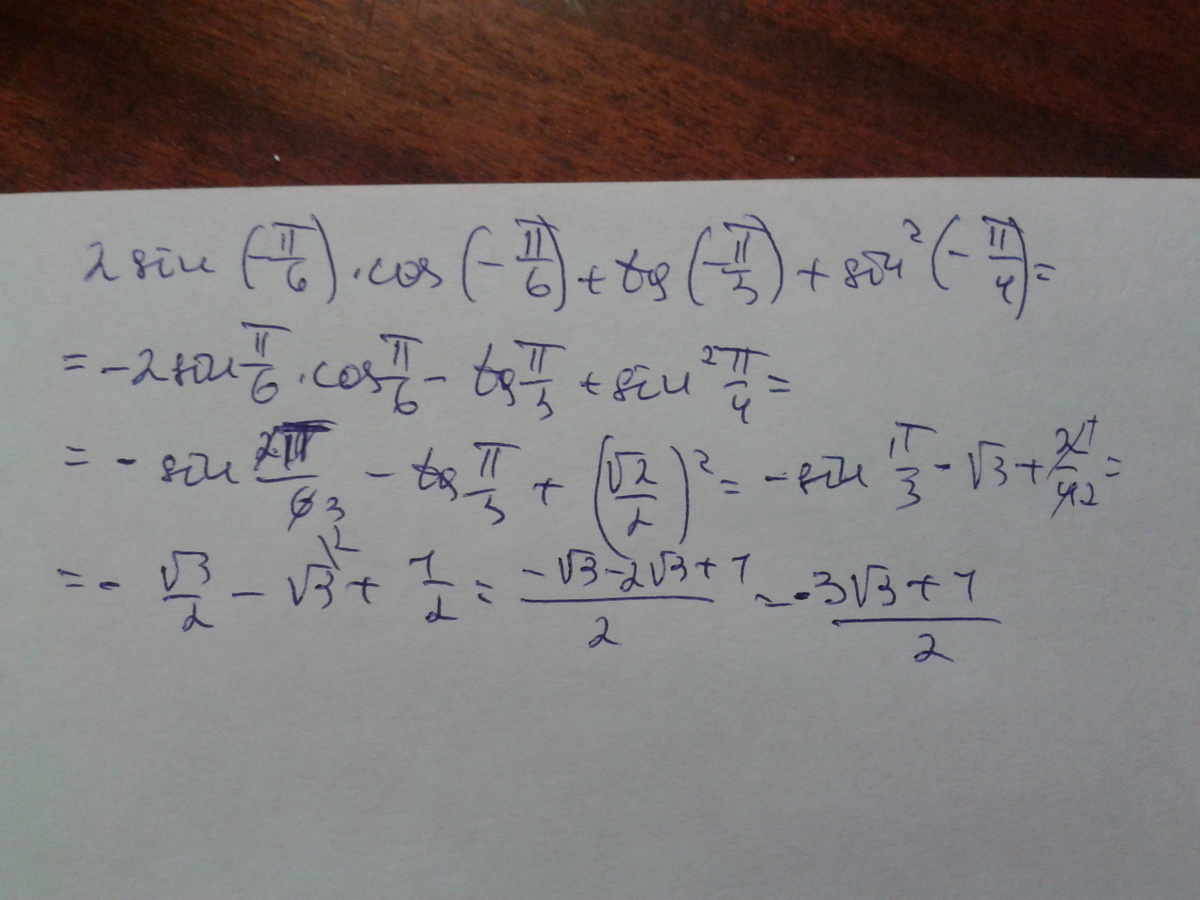 2 sin (-π/6) · cos (-π/6) + tg (-π/3) + sin² (-π/4) =
= -2 sin π/6 · cos π/6 - tg π/3 + sin² π/4 =
= - sin 2π/6 3 - tg π/3 + (√2/2)² = - sin π/3 - √3 + 2 1/4 2 =
= - √3/2 - √3 \2 + 1/2 = (-√3 - 2√3 + 1)/2 = (-3√3 + 1)/2